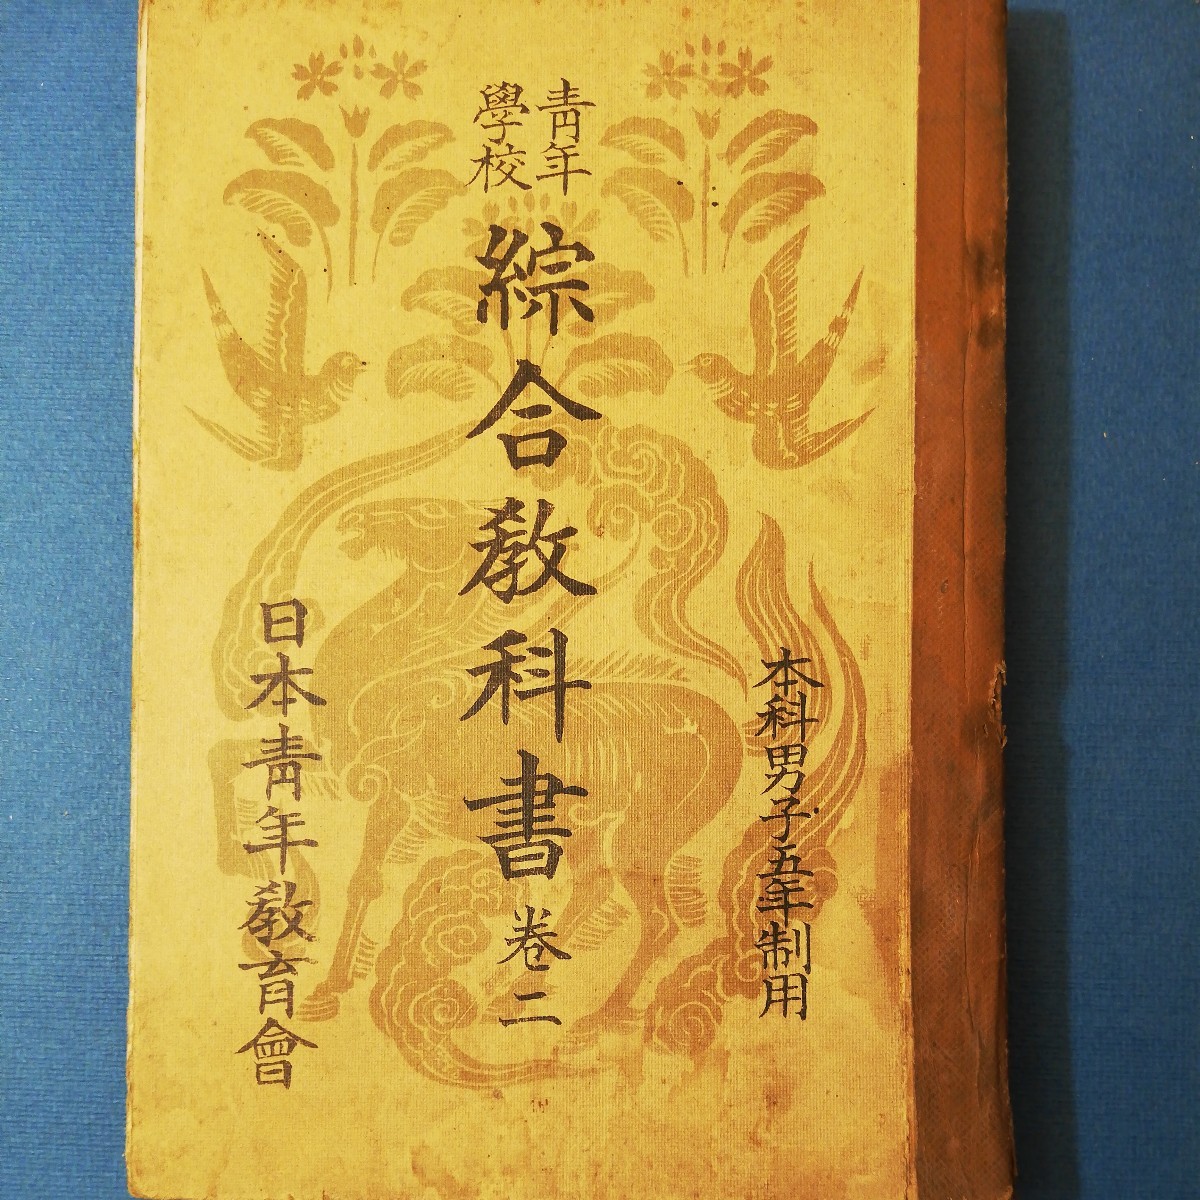 本科男子五年制用
青年
學校
綜合敎科書 卷二
日本靑年敎育會